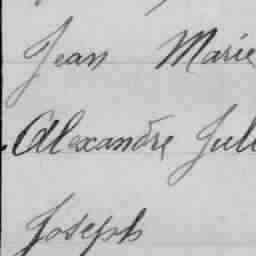 Jean Marie
Alexandre Jul
Joseph